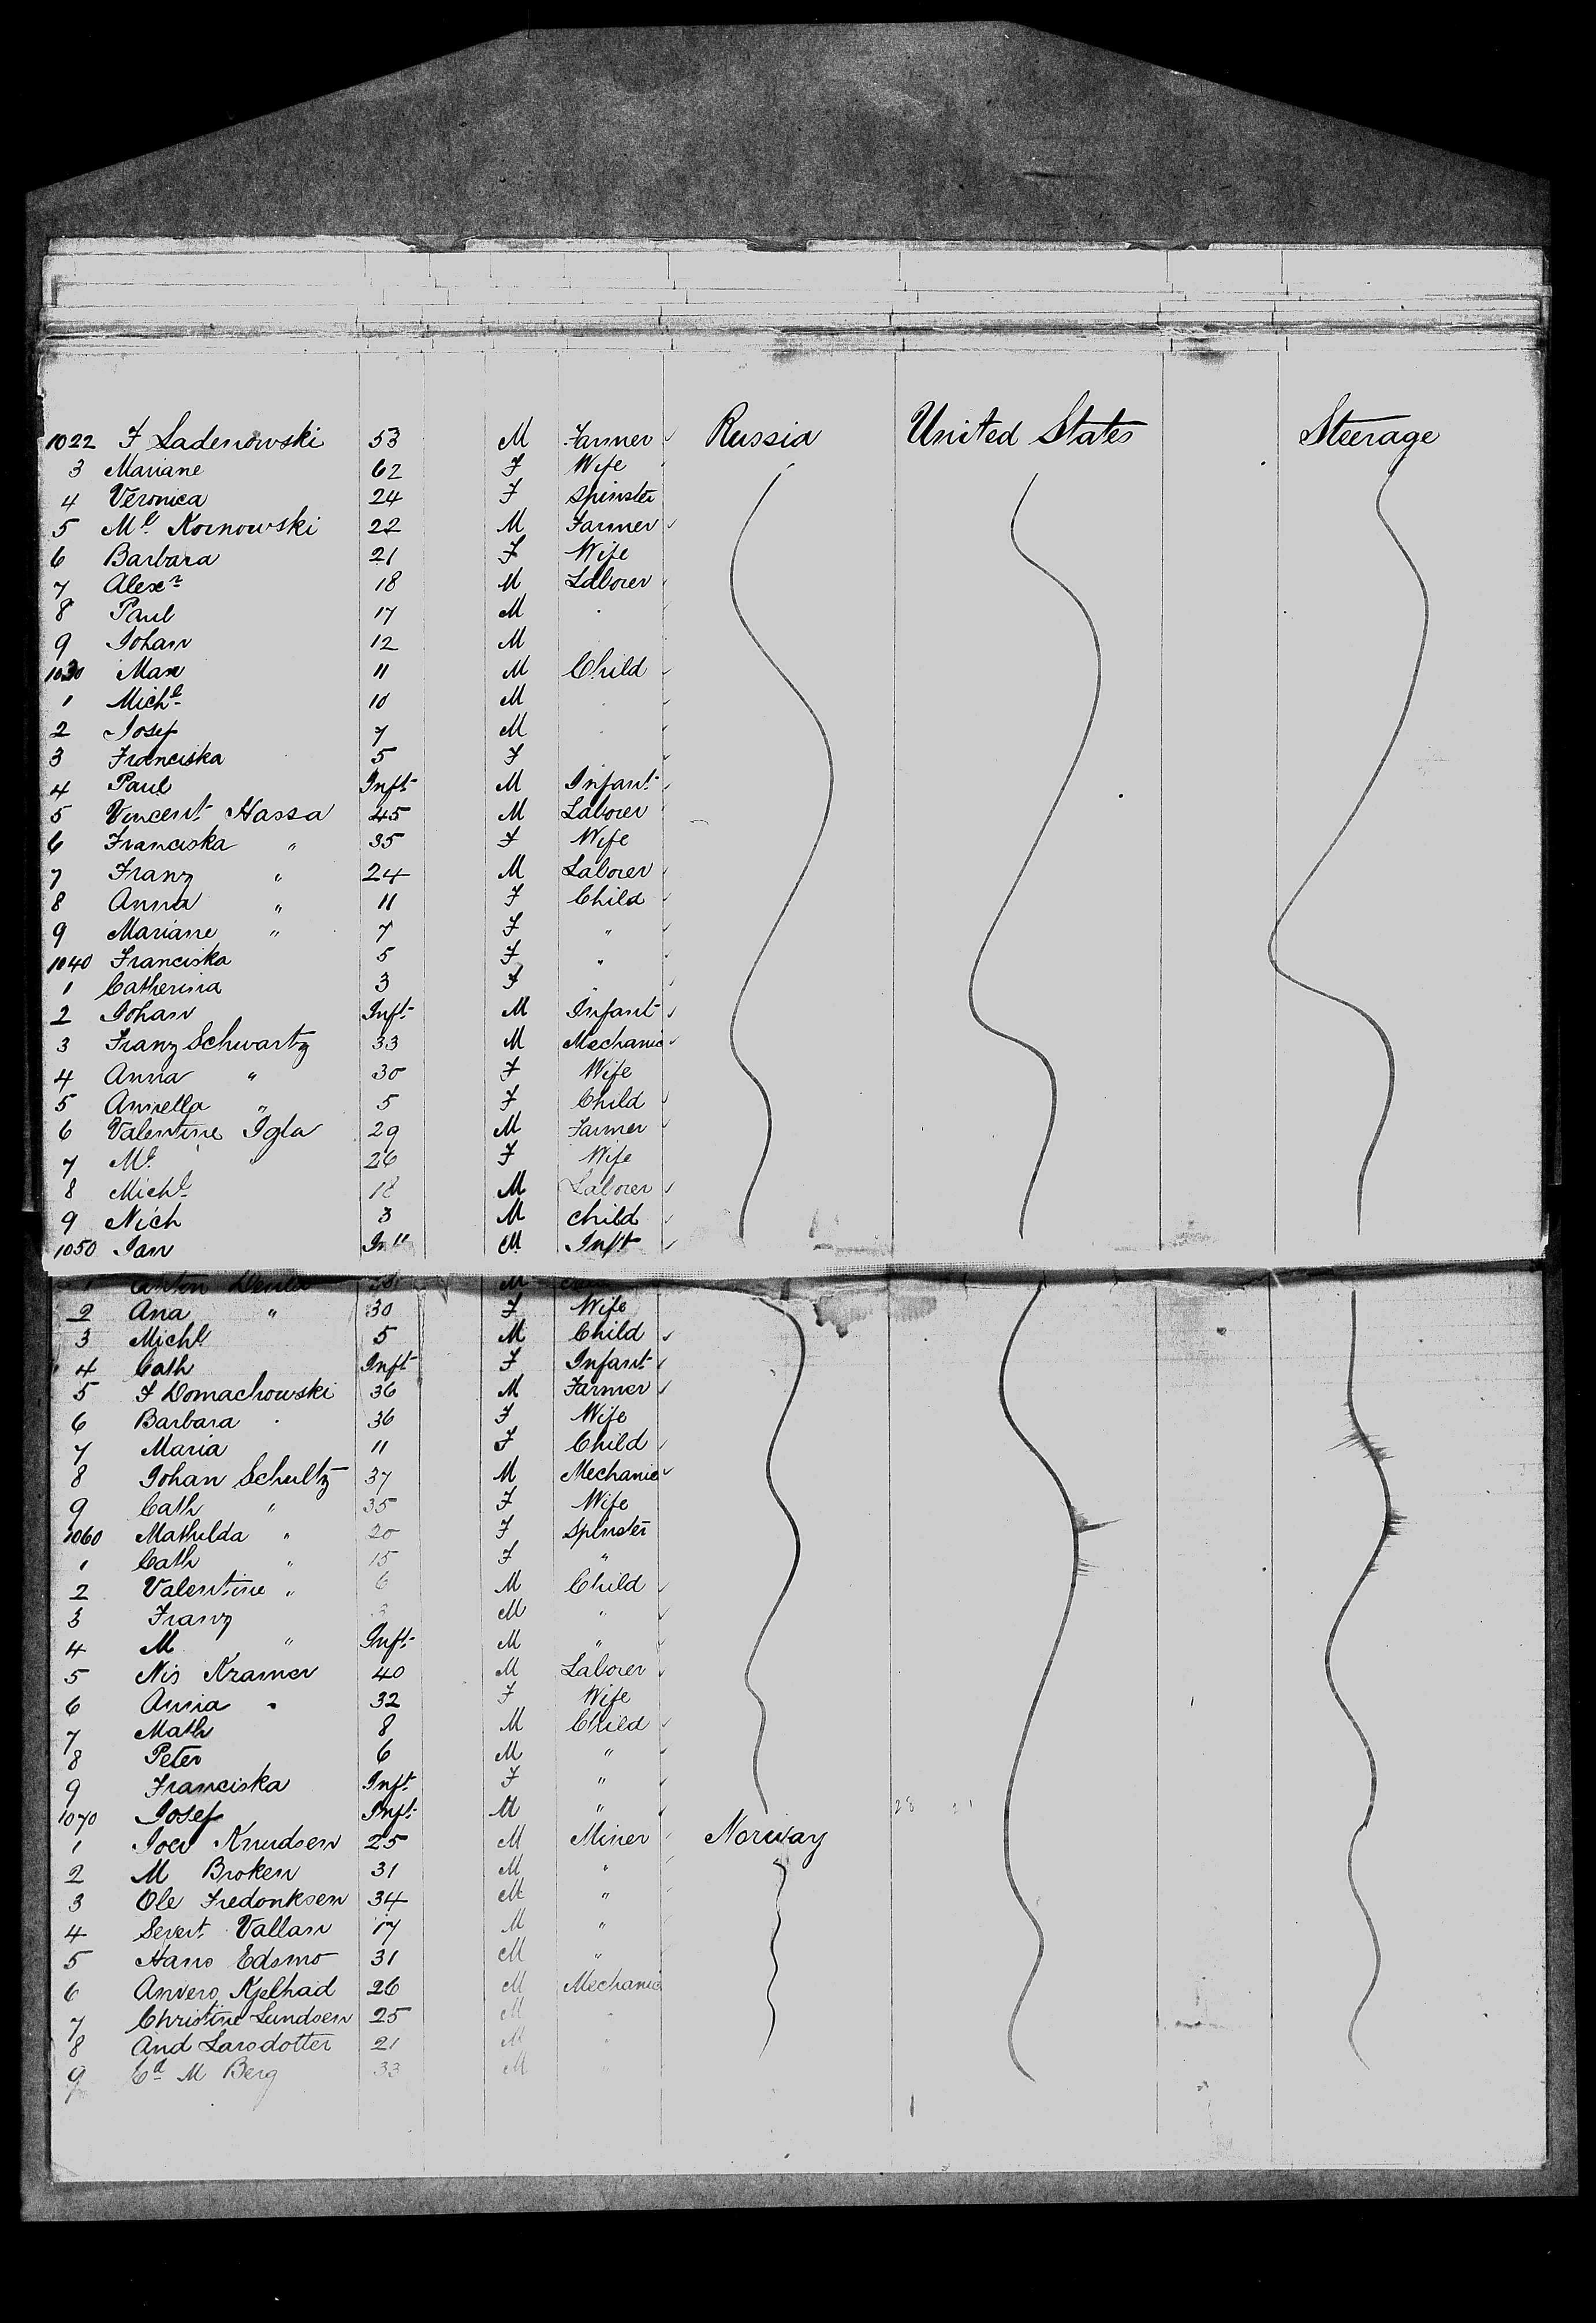 1022 F Sadenowski 53 M Farmer Russia United States Steerage
3 Mariane 62 F Wife
4 Veronica 24 F Spinster
5 Ml Kornowski 22 M Farmer
6 Barbara 21 F Wife
7 Alexr 18 M Laborer
8 Paul 17 M
9 Johan 12 M
1030 Max 11 M Child
1 Michl 10 M
2 Josef 7 M
3 Franciska 5 F
4 Paul Inft M Infant
5 Vincent Hassa 45 M Laborer
6 Franciska " 35 F Wife
7 Franz " 24 M Laborer
8 Anna " 11 F Child
9 Mariane " 7 F "
1040 Franciska 5 F "
1 Catherina 3 F
2 Johan Inft M Infant
3 Franz Schwartz 33 M Mechanic
4 Anna " 30 F Wife
5 Annella " 5 F Child
6 Valentine Igla 29 M Farmer
7 " 26 F Wife
8 Michl 18 M Laborer
9 Nich 3 M Child
1050 Jan M Inft
1 Anton M
2 Ana " 30 F Wife
3 Michl 5 M Child
4 Cath Inft F Infant
5 F Domachowski 36 M Farmer
6 Barbara 36 F Wife
7 Maria 11 F Child
8 Johan Schultz 37 M Mechanic
9 Cath " 35 F Wife
1060 Mathilda " 20 F Spinster
1 Cath " 15 F "
2 Valentine " 6 M Child
3 Franz M "
4 M " Inft M "
5 Nis Kramer 40 M Laborer
6 Anna 32 F Wife
7 Math 8 M Child
8 Peter 6 M "
9 Franciska Inft F "
1070 Josef Inft M "
1 Knudsen 25 M Miner Norway
2 M Broken 31 M "
3 Ole Fredonksen 34 M "
4 Severt Vallan 17 M "
5 Hans Edsmo 31 M "
6 Anvero Kjelhad 26 M Mechanic
7 Christine Lundsen 25 M
8 And Larsdotter 21 M
9 Cd M Berg 33 M "